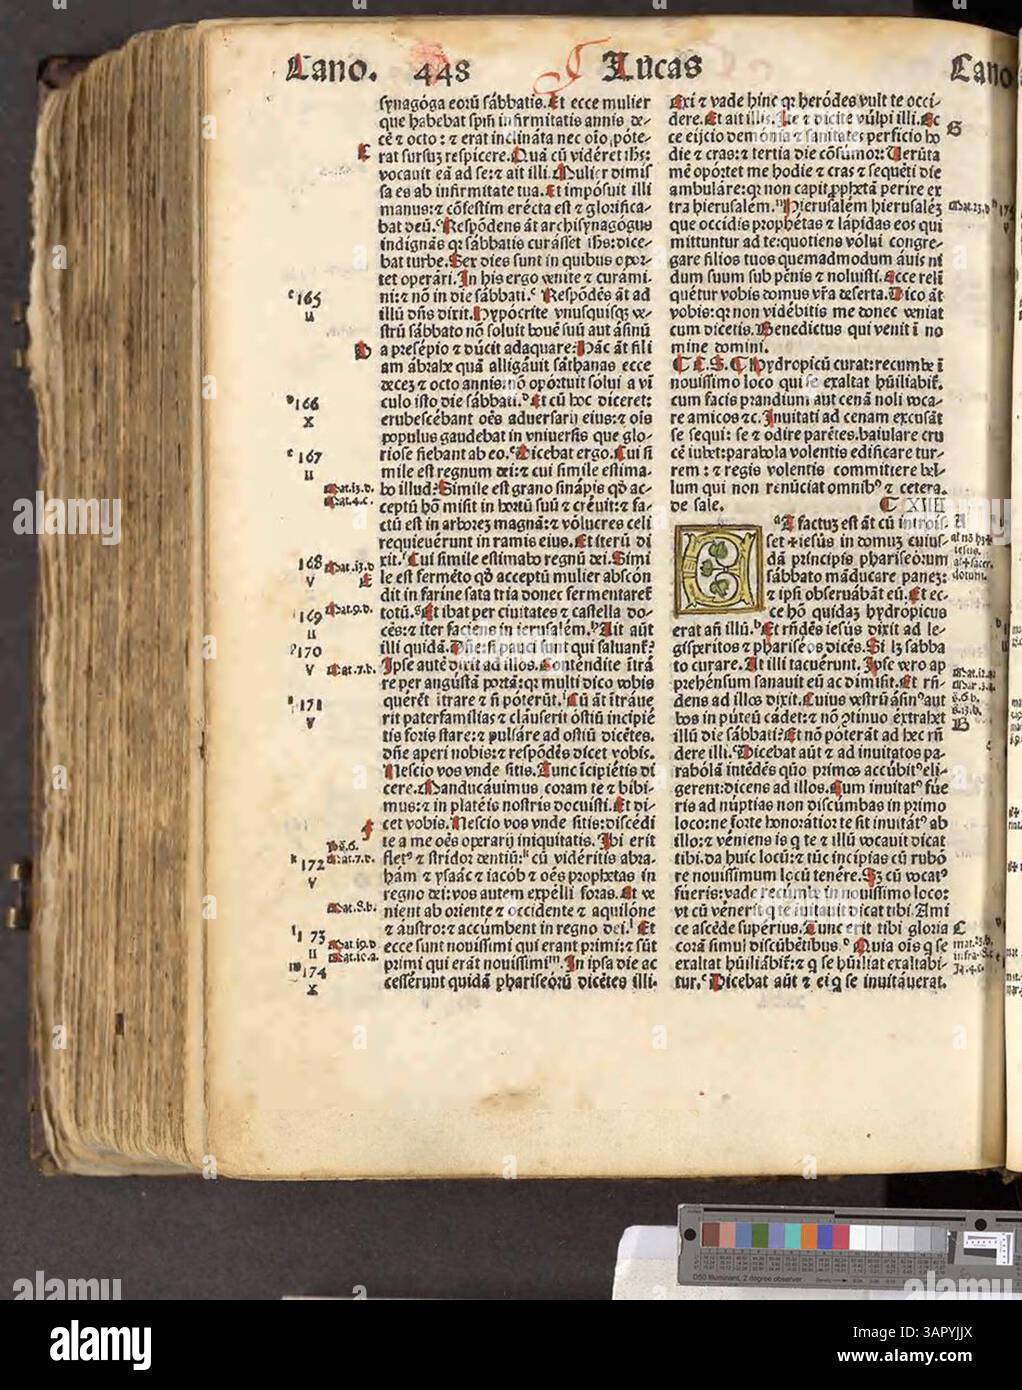 Cano. 448 Lucas Cano
synagóga eorũ sábbatis. Et ecce mulier
que habebat spm̃ infirmitatis annis de-
cẽ ⁊ octo: ⁊ erat inclináta nec oĩo póte-
rat sursuʒ respicere. Quã cũ vidéret ihs:
vocauit eã ad se: ⁊ ait illi. Mulier dimis
sa es ab infirmitate tua. Et impósuit illi
manus: ⁊ cõfestim erécta est ⁊ glorifica-
bat deũ. Respõdens ãt archisynagógus
indignãs qꝛ sábbatis curásset ihs: dice-
bat turbe. Sex dies sunt in quibus opor-
tet operári. In his ergo venite ⁊ curámi-
ni: ⁊ nõ in die sábbati. Respõdẽs ãt ad
illũ dñs dixit. Hypócrite vnusquisqʒ ve-
strũ sábbato nõ soluit bouẽ suũ aut ásinũ
a presépio ⁊ dúcit adaquare? Hãc ãt fili
am ábrahe quã alligáuit sáthanas ecce
deceʒ ⁊ octo annis: nõ opórtuit solui a vĩ
culo isto die sábbati. Et cũ hoc diceret:
erubescébant oẽs aduersarij eius: ⁊ oĩs
populus gaudebat in vniuersis que glo-
riose fiebant ab eo. Dicebat ergo. Cui si
mile est regnum dei: ⁊ cui simile estima-
bo illud? Simile est grano sinápis qð ac-
ceptũ hõ misit in hortũ suũ ⁊ creuit: ⁊ fa-
ctũ est in arboreʒ magnã: ⁊ vólucres celi
requieuérunt in ramis eius. Et iterũ di
xit. Cui simile estimabo regnũ dei. Simi
le est ferméto qð acceptũ mulier abscón
dit in farine sata tria donec fermentaret
totũ. Et ibat per ciuitates ⁊ castella do-
cẽs: ⁊ iter faciens in ierusalém. Ait aũt
illi quidã. Dñe: si pauci sunt qui saluant?
Ipse autẽ dixit ad illos. Contendite ĩtrá
re per angústã portã: qꝛ multi dico vobis
querẽt ĩtrare ⁊ ñ póterũt. Cũ ãt ĩtráue
rit paterfamílias ⁊ cláuserit óstiũ incipié
tis foris stare: ⁊ pulsáre ad óstiũ dicẽtes.
dñe aperi nobis: ⁊ respõdẽs dicet vobis.
Nescio vos vnde sitis. Tunc ĩcipiétis di
cere. Manducáuimus coram te ⁊ bíbi-
mus: ⁊ in platéis nostris docuisti. Et di-
cet vobis. Nescio vos vnde sitis: discédi
te a me oẽs operarij iniquitatis. Ibi erit
flet⁹ ⁊ stridor dentiũ: cũ vidéritis abra-
hám ⁊ ysaác ⁊ iacób ⁊ oẽs prophetas in
regno dei: vos autem expélli foras. Et ve
nient ab oriente ⁊ occidente ⁊ aquilóne
⁊ áustro: ⁊ accúmbent in regno dei. Et
ecce sunt nouissimi qui erant primi: ⁊ sũt
primi qui erãt nouissimi. In ipsa die ac
cessérunt quidã phariseórũ dicẽtes illi.
165
II
166
X
167
II
Mat.13.d.
Mar.4.c.
168
V
Mat.13.d
E
169
II
Mat.9.d.
170
V
Mat.7.b.
171
V
172
V
ps.6.
Mat.7.d.
Mat.8.b.
173
II
Mat.19.d
Mar.10.a.
174
X
Exi ⁊ vade hinc qꝛ heródes vult te occi-
dere. Et ait illis. Ite ⁊ dicite vúlpi illi. Ec
ce eijcio demónia ⁊ sanitates perficio ho
die ⁊ cras: ⁊ tertia die cõsúmor: Verũta
mẽ opórtet me hodie ⁊ cras ⁊ sequẽti die
ambuláre: qꝛ non capit ꝓphetã perire ex
tra hierusalém. Hierusalém hierusaléʒ
que occidis prophétas ⁊ lápidas eos qui
mittuntur ad te: quotiens vólui congre-
gare filios tuos quemadmodum áuis ni
dum suum sub pénis ⁊ noluisti. Ecce relĩ
quétur vobis domus vr̃a deserta. Dico ãt
vobis: qꝛ non vidébitis me donec veniat
cum dicetis. Benedictus qui venit ĩ no
mine domini.
Hydropicũ curat: recumbe ĩ
nouissimo loco qui se exaltat hũiliabit̃.
cum facis prandium aut cenã noli voca-
re amicos ⁊c. Inuitati ad cenam excusãt
se sequi: se ⁊ odire parẽtes. baiulare cru
cẽ iubet: parabola volentis edificare tur-
rem: ⁊ regis volentis committere bel-
lum qui non renũciat omnib⁹ ⁊ cetera.
de sale. C XIIII
ET factuʒ est ãt cũ introis-
set iesús in domuʒ cuius-
dã principis phariseórum
sábbato mãducare paneʒ:
⁊ ipsi obseruábãt eũ. Et ec-
ce hõ quidaʒ hydrópicus
erat añ illũ. Et rñdẽs iesús dixit ad le-
gisperitos ⁊ phariséos dicẽs. Si lʒ sabba
to curare. At illi tacuérunt. Ipse vero ap
prehénsum sanauit eũ ac dimisit. Et rñ-
dens ad illos dixit. Cuius vestrũ ásin⁹ aut
bos in púteũ cádet: ⁊ nõ ꝯtinuo éxtrahet
illũ die sábbati? Et nõ póterãt ad hec rñ
dere illi. Dicebat aũt ⁊ ad inuitatos pa-
rabólã intédẽs quõ primos accúbit⁹ eli-
gerent: dicens ad illos. Cum inuitat⁹ fúe
ris ad núptias non discúmbas in primo
loco: ne forte honorátior te sit inuitát⁹ ab
illo: ⁊ véniens is q te ⁊ illũ vocauit dicat
tibi. da huic locũ: ⁊ tũc incípias cũ rubó
re nouissimum locũ tenére. Sʒ cũ vocat⁹
fúeris: vade recúmbe in nouíssimo loco:
vt cũ vénerit q te inuitauit dicat tibi. Ami
ce ascéde supérius. Tunc erit tibi gloria
corã simul discũbẽtibus. Quia oĩs q se
exaltat hũiliábit̃: ⁊ q se hũiliat exaltabi-
tur. Dicebat aũt ⁊ ei q se inuitáuerat.
G
Mat.23.d
A
B
C
mat.23.b.
D50 Illuminant, 2 degree observer
Density
alamy
Image ID: 3APYJJX
www.alamy.com